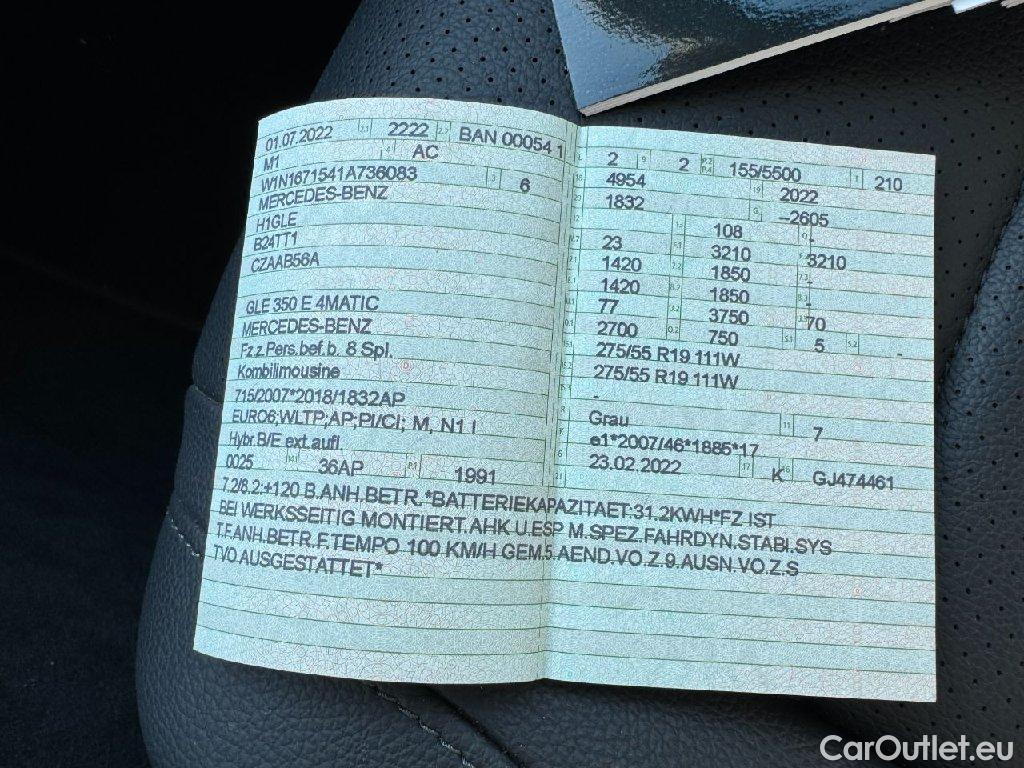 01.07.2022 2222 BAN 00054 1
M1 AC
W1N1671541A736083 6
MERCEDES-BENZ
H1GLE
B24TT1
CZAAB56A
GLE 350 E 4MATIC
MERCEDES-BENZ
Fz.z.Pers.bef.b. 8 Spl.
Kombilimousine
715/2007*2018/1832AP
EURO6;WLTP;AP;PI/CI; M, N1 I
Hybr.B/E ext.aufl
0025 36AP 1991
2 2 155/5500 210
4954 2022
1832 –2605
108 -
23 3210 3210
1420 1850 -
1420 1850 -
77 3750 70
2700 750 5 -
275/55 R19 111W
275/55 R19 111W
-
Grau 7
e1*2007/46*1885*17
23.02.2022 K GJ474461
7.2/8.2:+120 B.ANH.BETR.*BATTERIEKAPAZITAET:31.2KWH*FZ IST
BEI WERKSSEITIG MONTIERT.AHK U.ESP M.SPEZ.FAHRDYN.STABI.SYS
T.F.ANH.BETR.F.TEMPO 100 KM/H GEM.5.AEND.VO.Z.9.AUSN.VO.Z.S
TVO.AUSGESTATTET*
CarOutlet.eu